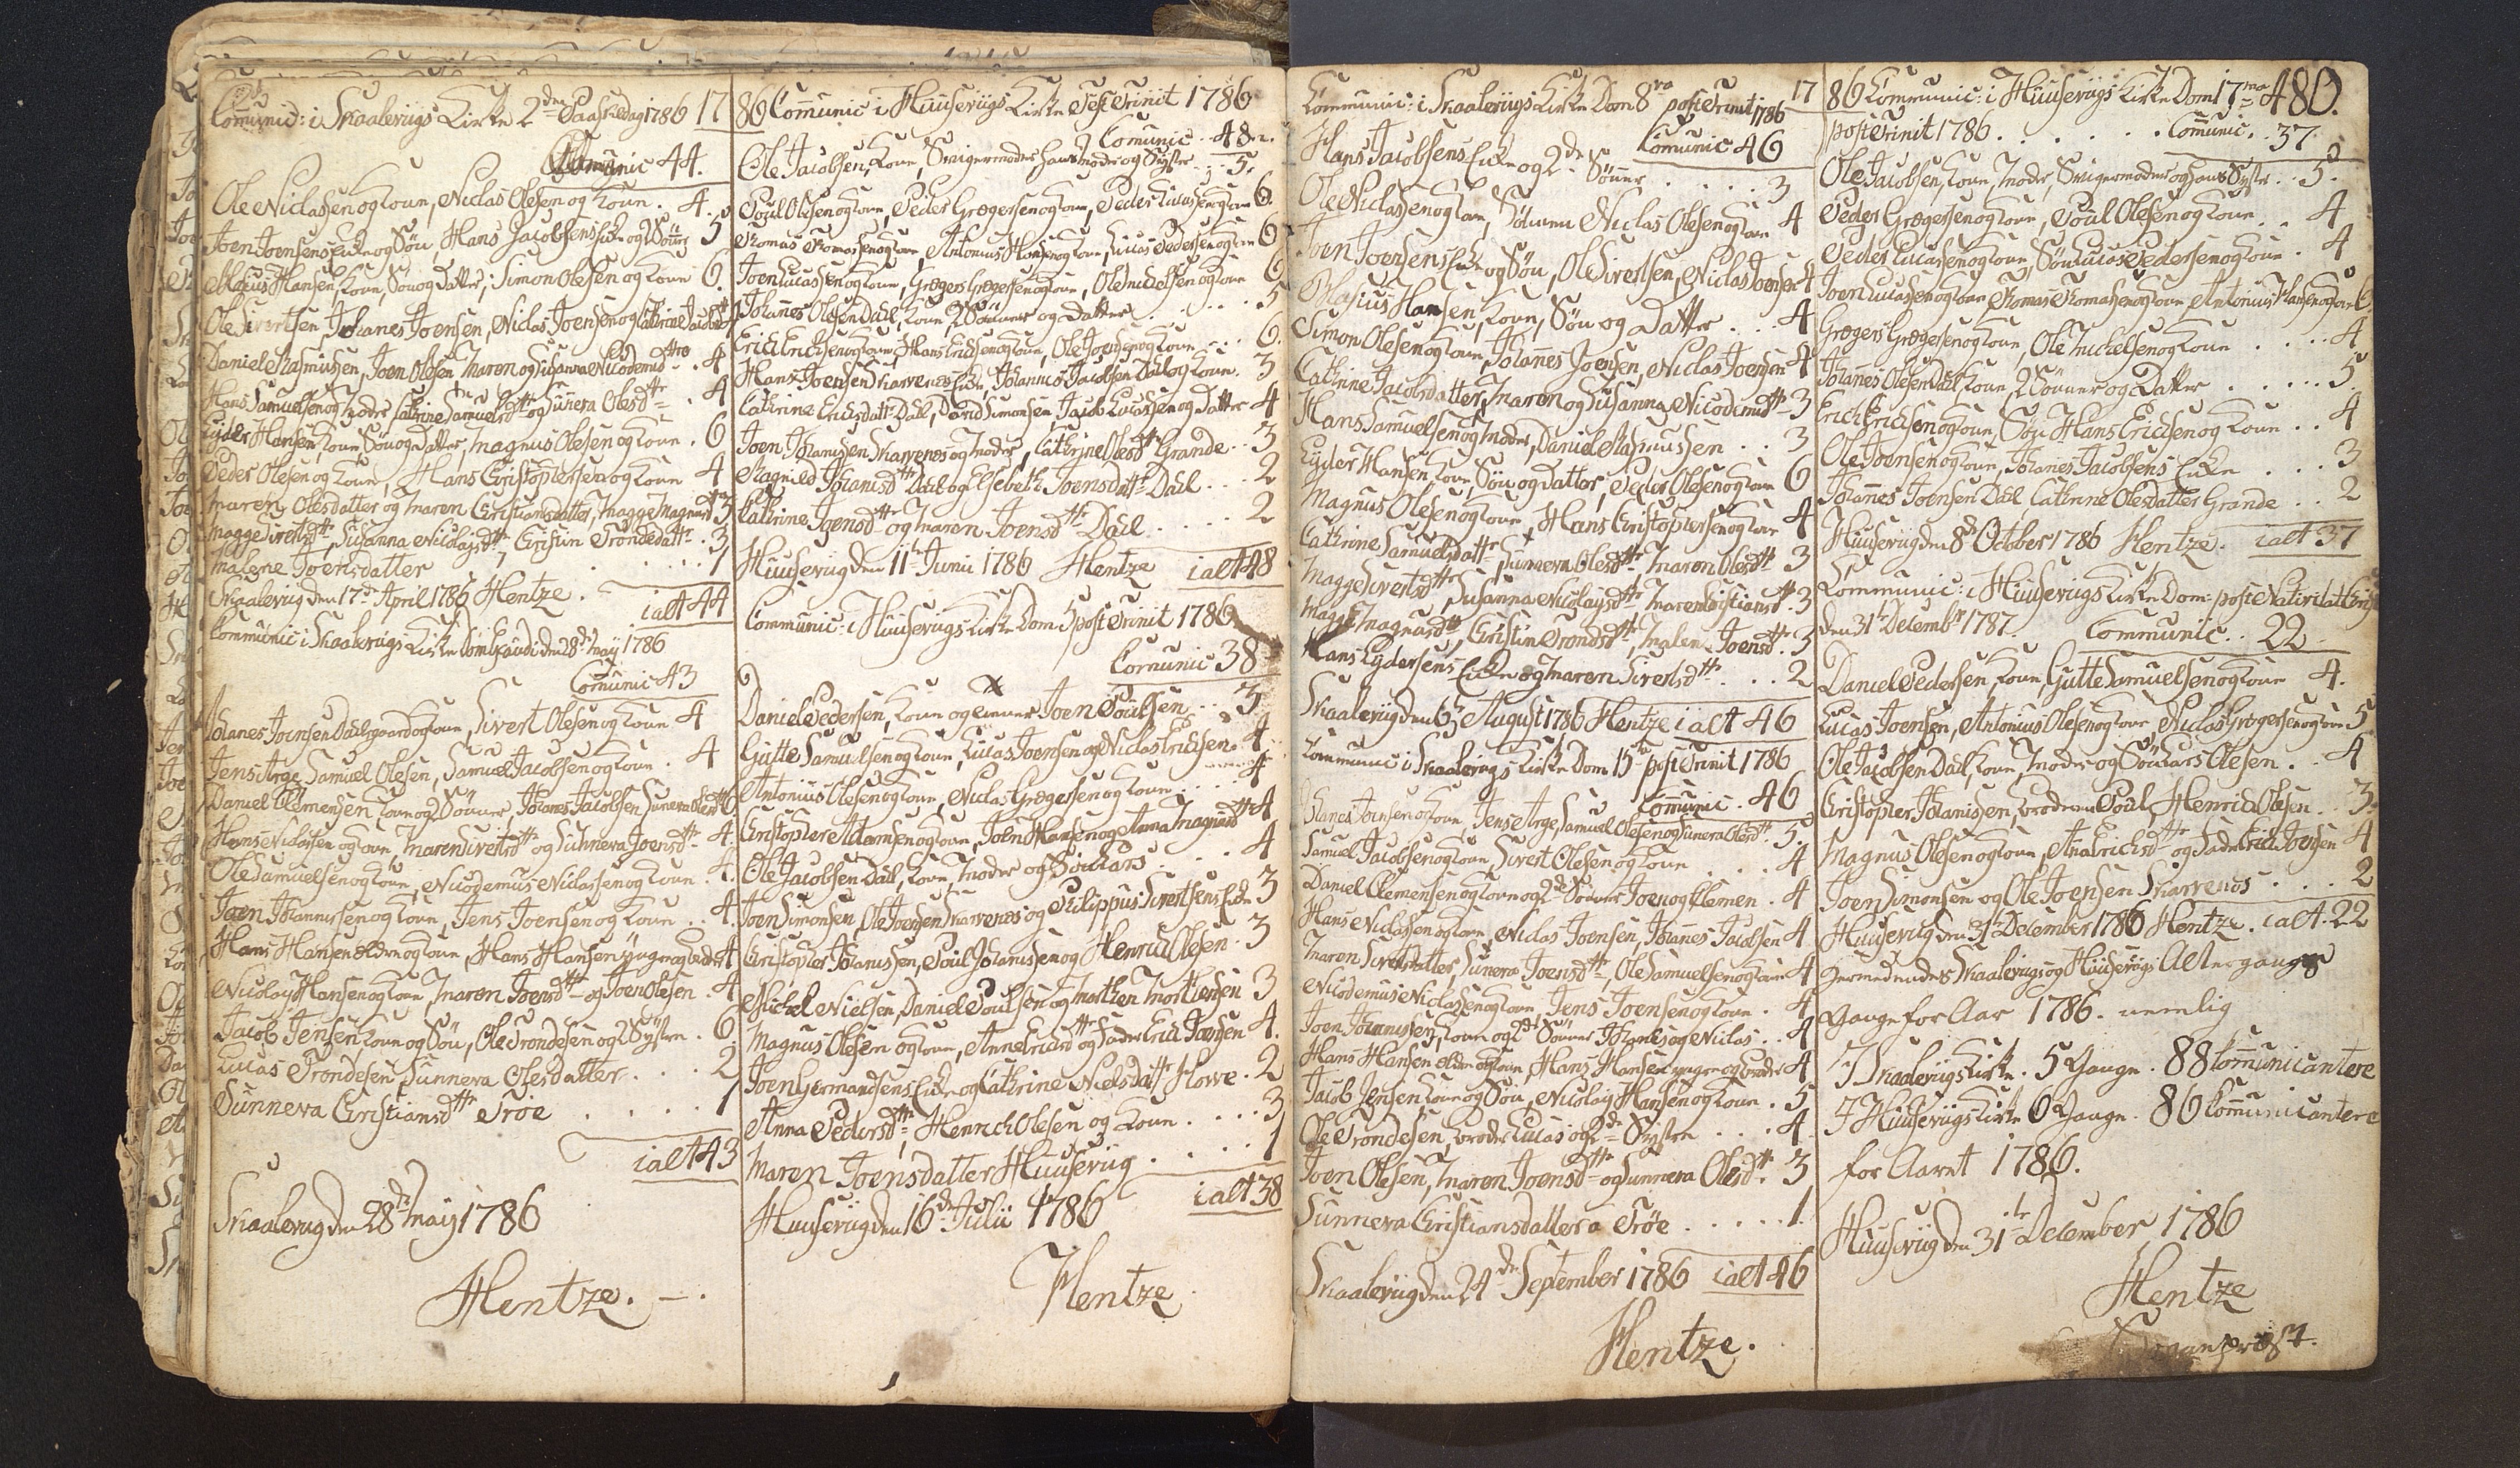 Com̄unic: i Skaalevigs Kirke 2den Paaskedag 1786 17
Com̄unic 44.
Ole Niclasen og Kone, Niclas Olesen og Kone. 4.
Joen Joensens Enke og Søn, Hans Jacobsens Enke og 2 Sönner 5
Blasius Hansen, Kone, Søn og Datter, Simon Olesen og Kone 6.
Ole Sivertsen, Johanes Joensen, Niclas Joensen og Cathrine Jacobsdttr 4
Daniel Rasmussen, Joen Olesen Maren og Susanna Nicodemisdttr . 4
Hans Samuelsen og Moder Cathrine Samuelsdttr og Sünneva Olesdttr . 4
Eyder Hansen, Kone, Søn og Datter, Magnus Olesen og Kone . 6
Peder Olesen og Kone, Hans Christophersen og Kone 4
Maren Olesdatter og Maren Christiansdatter, Magge Magnusd 3
Magge Sivertsdttr, Susanna Nicolajsdttr, Christin Trondesdattr . 3
Malene Joensdatter . . . . 1
Skaalevig den 17de April 1786 Hentze . ialt 44
Communic i Skaalevigs Kirke Dom Exaudi den 28de May 1786
Comunic 43
Johanes Joensen Dalsgaard og Kone, Sivert Olesen og Kone 4
Jens Arge, Samuel Olesen, Samuel Jacobsen og Kone . 4
Daniel Clemensen Kone og 2 Sönner, Johanes Jacobsen Sunneva Olesdttr 6
Hans Niclasen og Kone, Maren Sivertsdttr og Sunneva Joensdttr 4.
Ole Samuelsen og Kone, Nicodemus Niclasen og Kone . 4.
Joen Johannissen og Kone, Jens Joensen og Kone . . 4.
Hans Hansen Eldre og Kone, Hans Hansen yngre og broder 4
Nicolay Hansen og Kone, Maren Joensdttr og Joen Olesen . 4
Jacob Jensen, Kone og Søn, Ole Trondesen og 2 Systre . 6.
Lucas Trondesen Sunneva Olesdatter . . . 2
Sunneva Christiansdttr Trøe . . . . 1
ialt 43
Skaalevig den 28de May 1786
Hentze. —.
86 Com̄unic i Huusevigs Kirke Fest Trinit 1786
Comunic . 48
Ole Jacobsen, Kone, Svigermoder hans Moder og Syster . . 5.
Poul Olesen og Kone, Peder Grægersen og Kone, Peder Lucassen og Kone 6.
Thomas Thomassen og Kone, Antonius Hansen og Kone, Lucas Pedersen og Kone 6
Joen Lucassen og Kone, Grægers Grægersen og Kone, Ole Michelsen og Kone 6
Johannes Olesen Dahl, Kone, 2 Sönner og Datter . . . . 5
Erich Erichsen og Kone, Hans Erichsen og Kone, Ole Joensen og Kone . . . 6.
Hans Joensen Skarvenes Enke, Johannes Jacobsen Dahl og Kone. 3
Cathrine Erichsdattr Dahl, David Simonsen, Jacob Lucassen og Datter 4
Joen Johannissen Skarvenes og Moder, Cathrine Olesdttr Grande . . 3
Ragnild Johanisdttr Dahl og Elsebeth Joensdattr Dahl . . . 2
Cathrine Joensdttr og Maren Joensdttr Dahl . . . . 2
Huusevig den 11te Junii 1786 Hentze ialt 48
Communic: i Huusevigs Kirke Dom 5 post Trinit 1786
Comunic 38
Daniel Pedersen, Kone og Joen Poulsen . . 3
Gutte Samuelsen og Kone, Lucas Joensen og Niclas Erichsen. 4
Antonius Olesen og Kone, Niclas Grægersen og Kone . . . 4
Christopher Adamsen og Kone, Joen Hansen og Anna Magnusdttr 4
Ole Jacobsen Dahl, Kone, Moder og Søn Lars . . . 4
Joen Simonsen, Ole Joensen Skarvenes og Philippus Sivertsens Enke 3
Christopher Johanissen, Poul Johanissen og Henrich Olesen . 3
Michel Nielsen, Daniel Poulsen og Morthen Morthensen 3
Magnus Olesen og Kone, Anna Erichsdttr og Fader Erich Joensen 4.
Joen Giermandsens Enke og Cathrine Nielsdattr Howe . 2
Anna Pedersdttr, Henrich Olesen og Kone . . . . 3
Maren Joensdatter Huusevig . . . . 1
Huusevig den 16de Julii 1786 ialt 38
Hentze
Communic: i Skaalevigs Kirke Dom 8va post Trinit 1786 17
Comunic 46
Hans Jacobsens Enke og 2de Sönner . . . . . 3
Ole Niclassen og Kone, Sönnen Niclas Olesen og Kone 4
Joen Joensens Enke og Søn, Ole Sivertsen, Niclas Joensen 4
Blasius Hansen, Kone, Søn og Datter . . . 4
Simon Olesen og Kone, Johannes Joensen, Niclas Joensen 4
Cathrine Jacobsdatter, Maren og Susanna Nicodemisd 3
Hans Samuelsen og Moder, Daniel Rasmussen . . 3
Eyder Hansen, Kone, Søn og Datter, Peder Olesen og Kone 6
Magnus Olesen og Kone, Hans Christophersen og Kone 4
Cathrine Samuelsdatter, Sunneva Olesdttr Maren Olesdtr 3
Magge Sivertsdttr Susanna Nicolaysdttr Maren Christiansd . 3
Magge Magnusdttr, Christin Trondsdttr, Malen Joensd . 3
Hans Eydersens Enke og Maren Sivertsdttr . . 2
Skaalevig den 6te August 1786 Hentze ialt 46
Communic i Skaalevigs Kirke Dom 15de post Trinit 1786
Com̄unic . 46
Johanes Joensen og Kone, Jens Arge, Samuel Olesen og Sunneva Olesdttr . 5.
Samuel Jacobsen og Kone, Sivert Olesen og Kone . . . . 4
Daniel Clemensen og Kone og 2de Sönner Joen og Clemen . 4
Hans Niclassen og Kone, Niclas Joensen, Johannes Jacobsen 4
Maren Sivertsdatter, Sunneva Joensdttr, Ole Samuelsen og Kone 4
Nicodemus Niclassen og Kone, Jens Joensen og Kone . 4
Joen Johannissen, Kone og 2de Sönner Johanes og Niclas . . 4
Hans Hansen Eldre og Kone, Hans Hansen yngre og broder 4
Jacob Jensen Kone og Søn, Nicolay Hansen og Kone . 5
Ole Trondesen, broder Lucas og 2de Systre . . . 4
Joen Olesen, Maren Joensdttr og Sunneva Olesdtr . 3
Sunneva Christiansdatter a Trøe . . . . . 1.
Skaalevig den 24de September 1786 ialt 46
Hentze.
86 Communic: i Huusevigs Kirke Dom 17ma 480.
post Trinit 1786 . . . . . Comunic . . 37
Ole Jacobsen, Kone, Moder, Svigermoder og hans Syster . . 5.
Peder Grægersen og Kone, Poul Olesen og Kone . . 4
Peder Lucassen og Kone, Søn Lucas Pedersen og Kone . 4
Joen Lucassen og Kone Thomas Thomassen og Kone Antonius Hansen og Kone 6.
Grægers Grægersen og Kone, Ole Michelsen og Kone . . . . 4
Johannes Olesen Dahl Kone, 2 Sönner og Datter . . . . . 5.
Erich Erichsen og Kone, Søn Hans Erichsen og Kone . . 4
Ole Joensen og Kone, Johanes Jacobsens Enke . . . 3
Johannes Joensen Dahl, Cathrine Olesdatter Grande . . 2
Huusevig den 8de October 1786 Hentze. ialt 37
Communic: i Huusevigs Kirke Dom: post Nativitat Christi
den 31te Decembr 1787. Communic . . 22
Daniel Pedersen, Kone, Gutte Samuelsen og Kone 4.
Lucas Joensen, Antonius Olesen og Kone, Niclas Grægersen og Kone 5
Ole Jacobsen Dahl, Kone, Moder og Søn Lars Olesen . . 4
Christopher Johanissen, broderen Poul, Henrich Olesen . . 3.
Magnus Olesen og Kone, Anna Erichsdttr og Fader Erich Joensen 4
Joen Simonsen og Ole Joensen Skarvenes . . . 2
Huusevig den 31te December 1786 Hentze . ialt . 22
Hermed endes Skaalevigs og Huusevigs Altergangs
Gange for Aar 1786. nemlig
I Skaalevigs Kirke . 5 Gange . 88 Com̄unicantere
I Huusevigs Kirke 6 Gange . 86 Com̄unicantere
for Aaret 1786.
Huusevig den 31te December 1786
Hentze